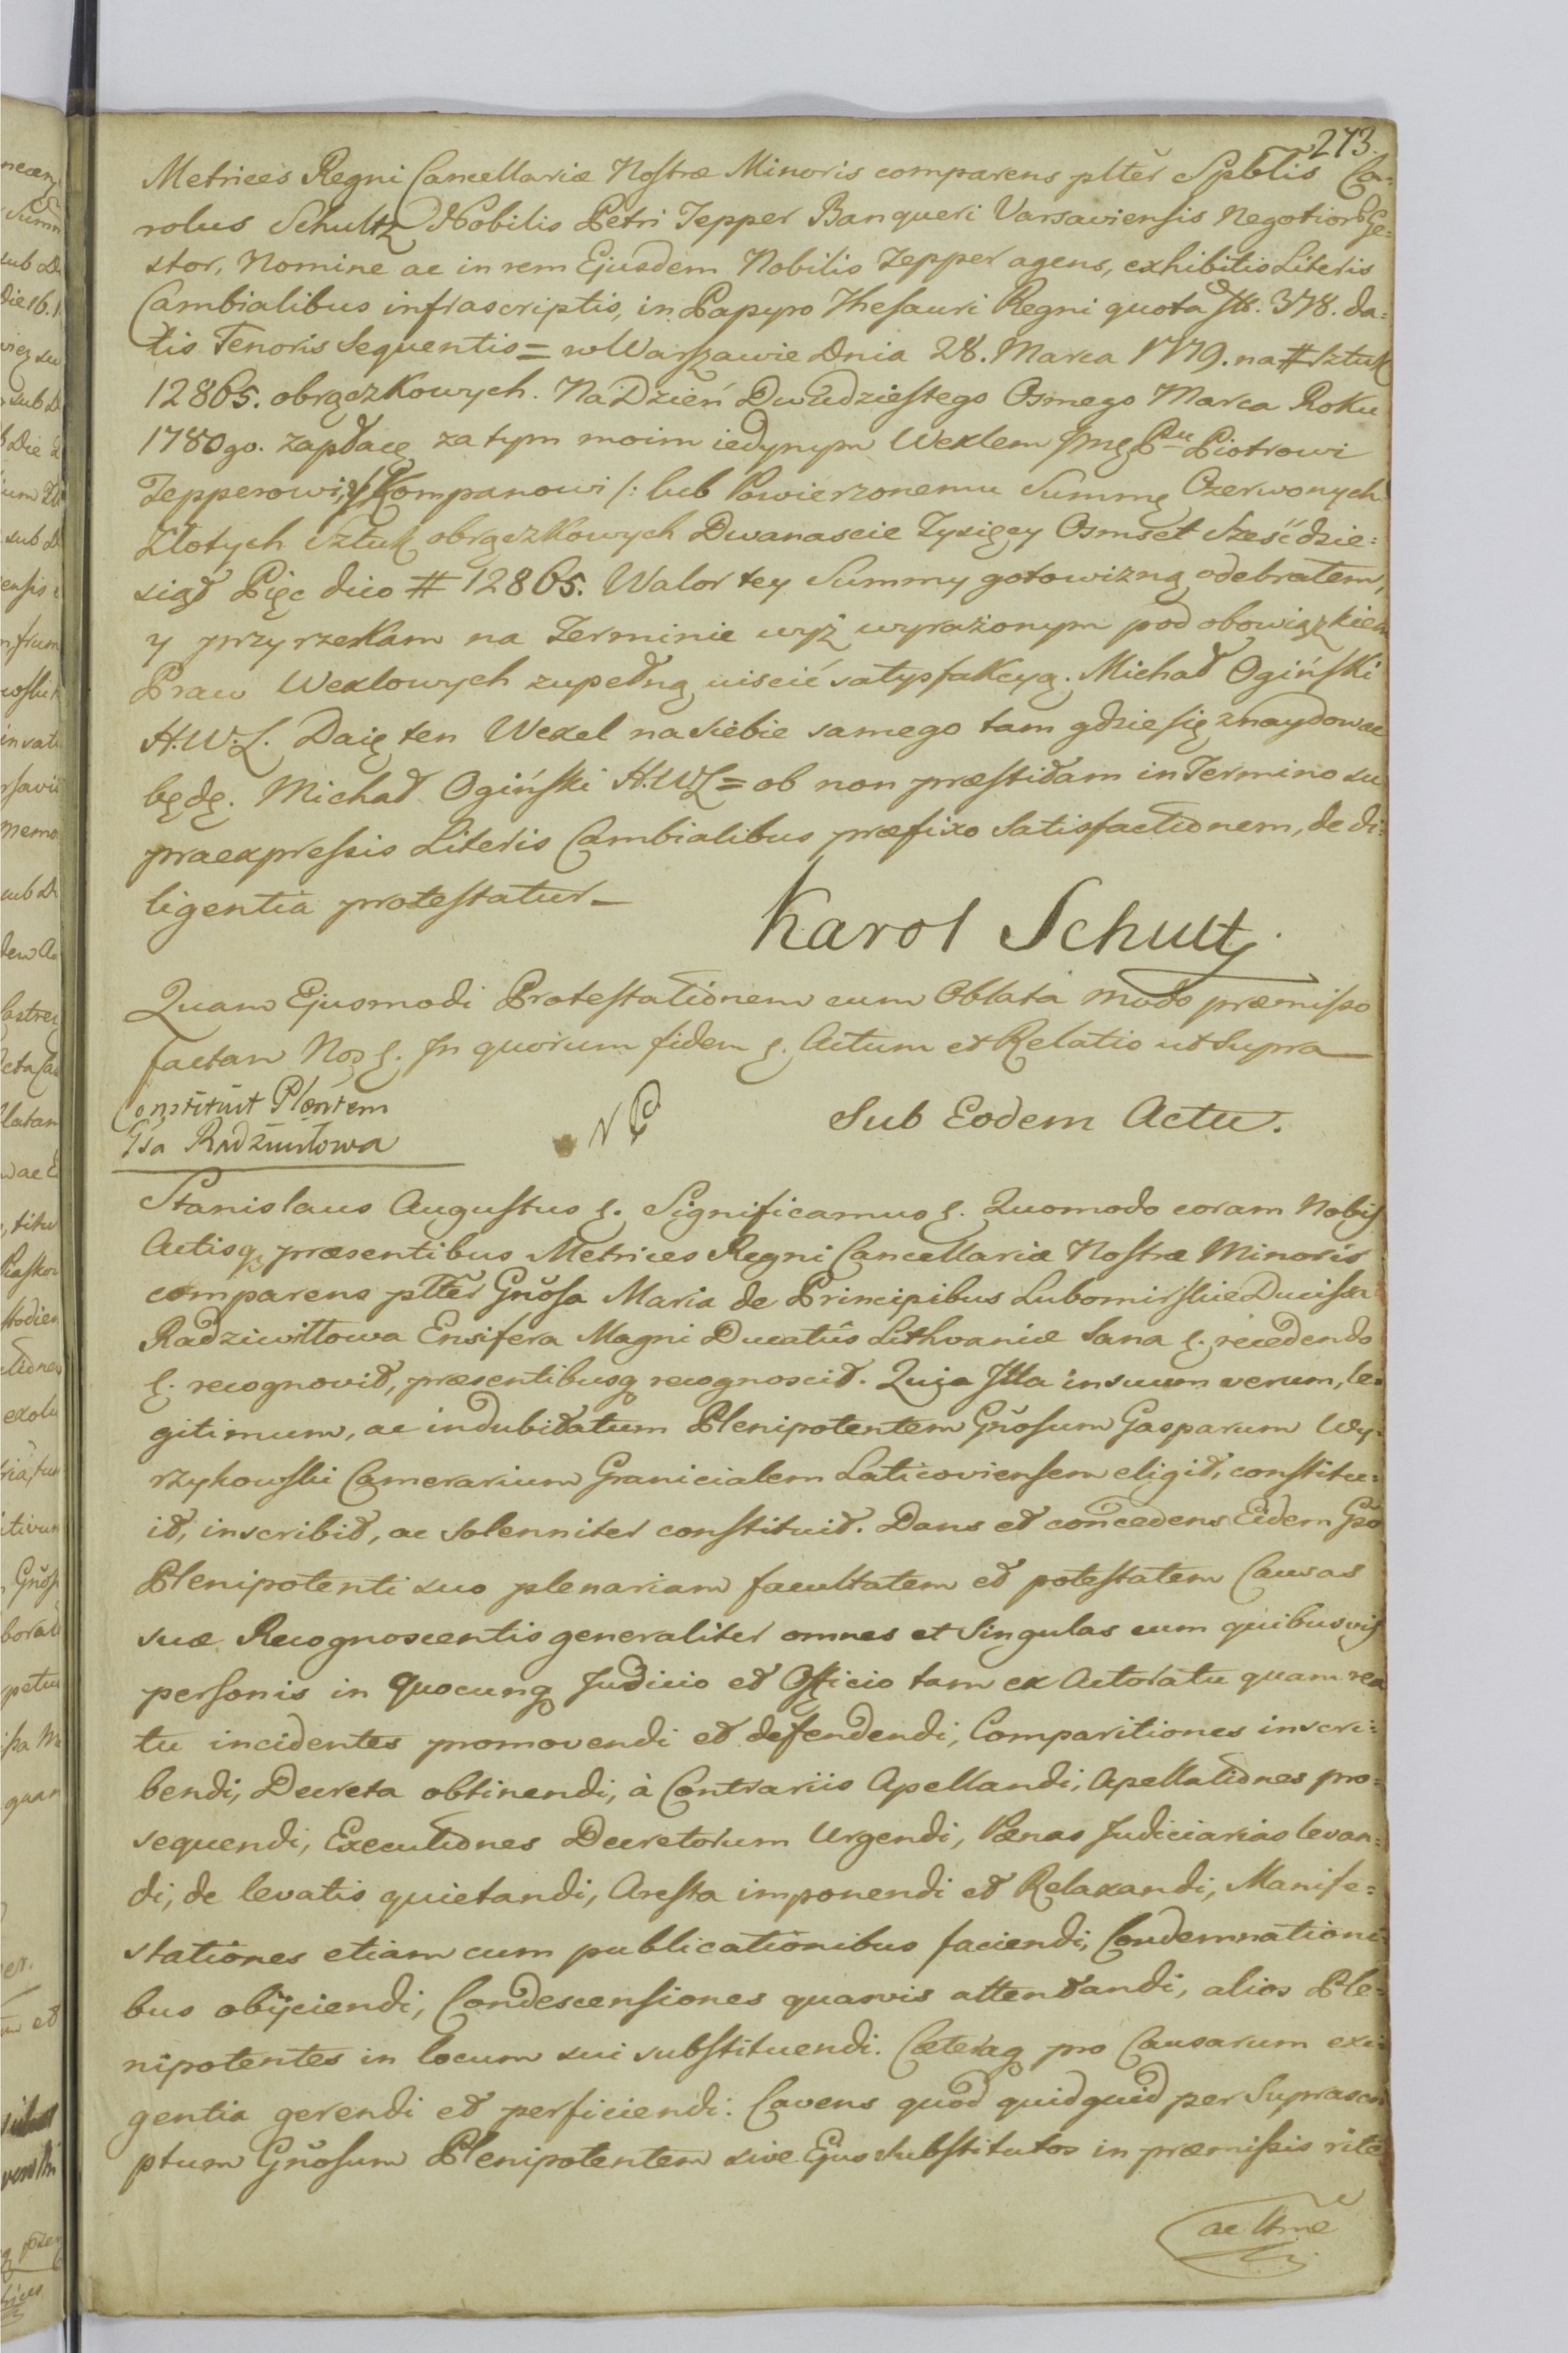 273.
Metrices Regni Cancellariæ Nostræ Minoris comparens pltěr Spbtis Ca=
rolus Schultz Nobilis Petri Tepper Banqueri Varsaviensis Negotior Ge=
stor, Nomine ac in rem Ejusdem Nobilis Tepper agens, exhibitis Literis
Cambialibus infrascriptis, in Papyro Thesauri Regni quota 378. da=
tis Tenoris Sequentis = w Warszawie Dnia 28. Marca 1779. na # sztuk
12865. obrączkowych. Na Dzień Dwudziestego Osmego Marca Roku
1780go. zapłacę za tym moim iedynym Wexlem Piotrowi
Tepperowi, y Kompanowi /: lub Powierzonemu Summę Czerwonych
Złotych Sztuk obrączkowych Dwanascie Tysięcy Osmset Sześćdzie=
siąt Pięc dico # 12865. Walor tey Summy gotowizną odebrałem,
y przyrzekam na Terminie wyż wyrażonym pod obowiązkiem
Praw Wexlowych zupełną uiscić satysfakcyą. Michał Ogiński
H.W.L. Daię ten Wexel na siebie samego tam gdzie się znaydowac
będę. Michał Ogiński H.W.L = ob non præstitam in Termino su
praexpressis Literis Cambialibus præfixo Satisfactionem, de di=
ligentia protestatur_
Karol Schultz
Quam Ejusmodi Protestationem cum Oblata modo præmisso
factam Nos ę. In quorum fidem ę. Actum et Relatio ut Supra
Constituit Plentem
Gsa Radziwiłłowa
Sub Eodem Actu.
Stanislaus Augustus ę. Significamus ę. Quomodo coram Nobis
Actisq præsentibus Metrices Regni Cancellariæ Nostræ Minoris
comparens pltěr Gňosa Maria de Principibus Lubomirskie Ducissa
Radziwiłłowa Ensifera Magni Ducatûs Lithvaniæ Sana ę. recedendo
ę. recognovit, præsentibusq recognoscit. Quia Illa in suum verum, le=
gitimum, ac indubitatum Plenipotentem Gňosum Gasparum Wy=
rzykowski Camerarium Granicialem Laticoviensem eligit, constitu=
it, inscribit, ac solenniter constituit. Dans et concedens Eidem Gso
Plenipotenti suo plenariam facultatem et potestatem Causas
suæ Recognoscentis generaliter omnes et Singulas cum quibusvis
personis in quocunq Judicio et Officio tam ex Actoratu quam rea
tu incidentes promovendi et defendendi, Comparitiones inscri=
bendi, Decreta obtinendi, à Contrariis Apellandi, Apellationes pro=
sequendi, Executiones Decretorum Urgendi, Pænas Judiciarias levan=
di, de levatis quietandi, Aresta imponendi et Relaxandi, Manife=
stationes etiam cum publicationibus faciendi, Condemnationi=
bus obijciendi, Condescensiones quasvis attentandi, alios Ple=
nipotentes in locum sui substituendi. Cæteraq pro Causarum exi=
gentia gerendi et perficiendi. Cavens quod quidquid per Suprascri
ptum Gňosum Plenipotentem sive Ejus substitutos in præmissis rite
ac ltmě